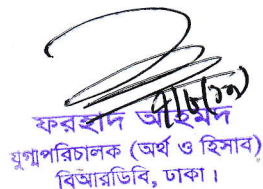 ফরহাদ আহমদ
যুগ্মপরিচালক (অর্থ ও হিসাব)
বিআরডিবি, ঢাকা।